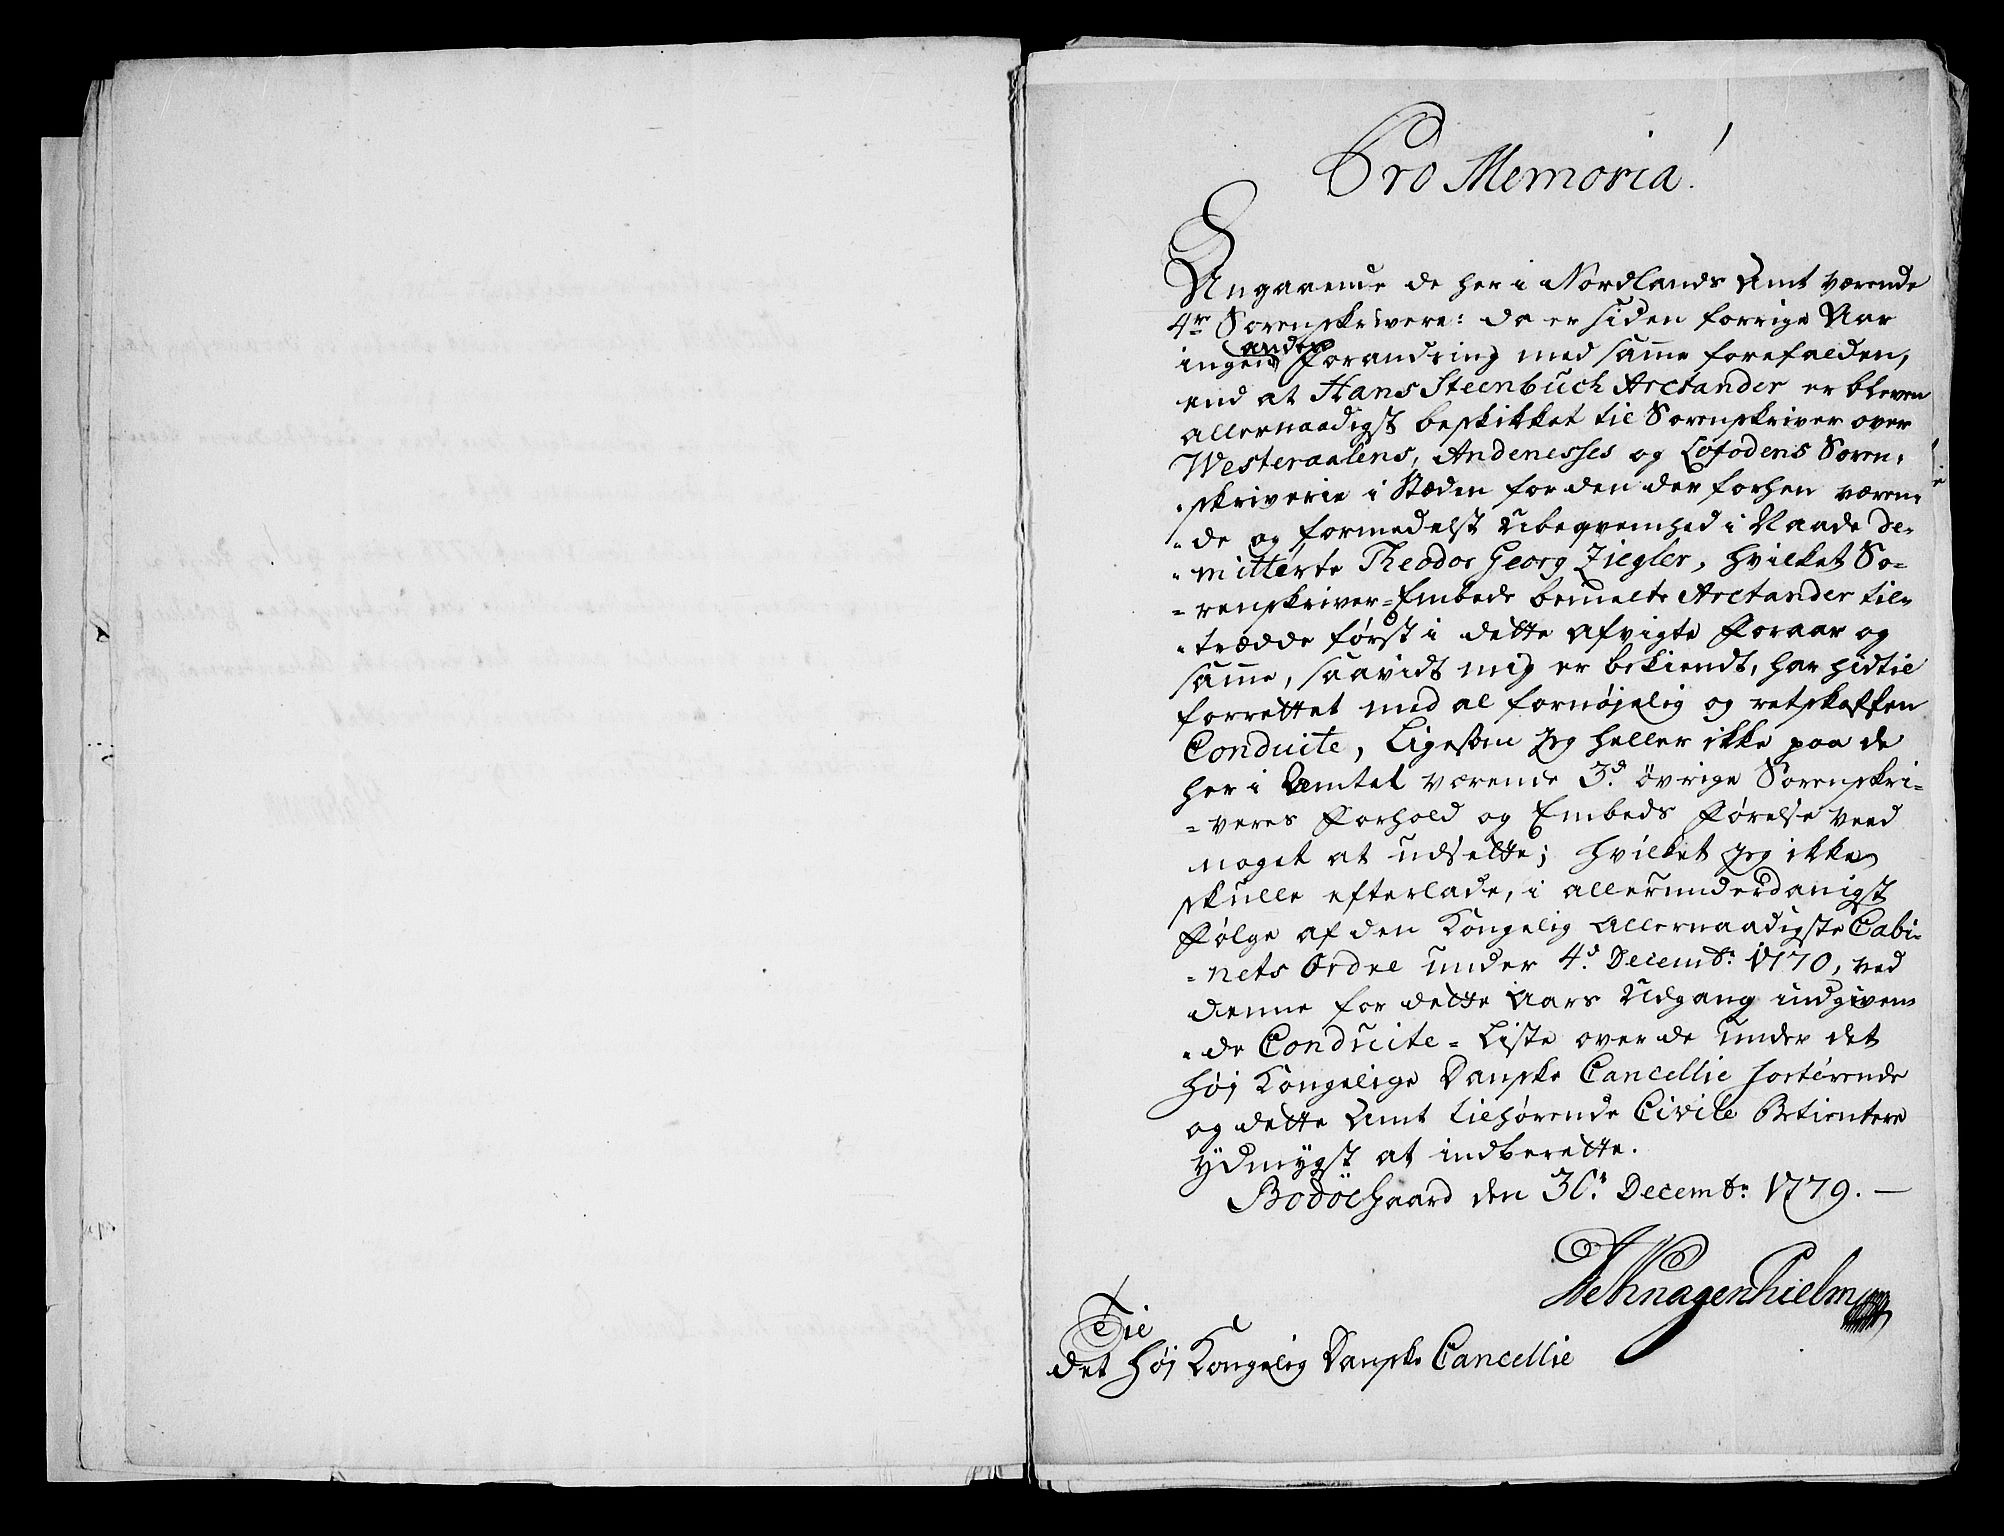 Pro Memoria!
Angaaende de her i Nordlands Amt værende
4re Sorenskrivere: da er siden forrige Aar
ingen anden Forandring med samme forefalden,
end at Hans Steenbuch Arctander er bleven
allernaadigst beskikket til Sorenskriver over
Westeraalens, Andenesses og Lofodens Soren-
-skriverie i Stæden for den der forhen væren-
-de og formedelst Ubeqvemhed i Naade de-
-mitterte Theodor Georg Ziegler, hvilket So-
-renskriver-Embede bemelte Arctander til-
-trædde først i dette afvigte Foraar og
samme, saavidt mig er bekiendt, har hidtil
forrettet med al fornøjelig og retskaffen
Conduite, Ligesom jeg heller ikke paa de
her i Amtet værende 3de øvrige Sorenskri-
-veres Forhold og Embeds Førelse veed
noget at udsette; hvilket jeg ikke
skulle efterlade, i allerunderdanigst
Følge af den Kongelig Allernaadigste Cabi-
-nets Ordre under 4d. Decembr. 1770, ved
denne for dette Aars Udgang indgiven-
-de Conduite-Liste over de under det
Høj Kongelige Danske Cancellie sorterende
og dette Amt tilhørende Civile Betientere
ydmygst at indberette.
Bodöegaard den 30. Decembr. 1779. –
Hagenhielm
Til
det Høj Kongelig Danske Cancellie